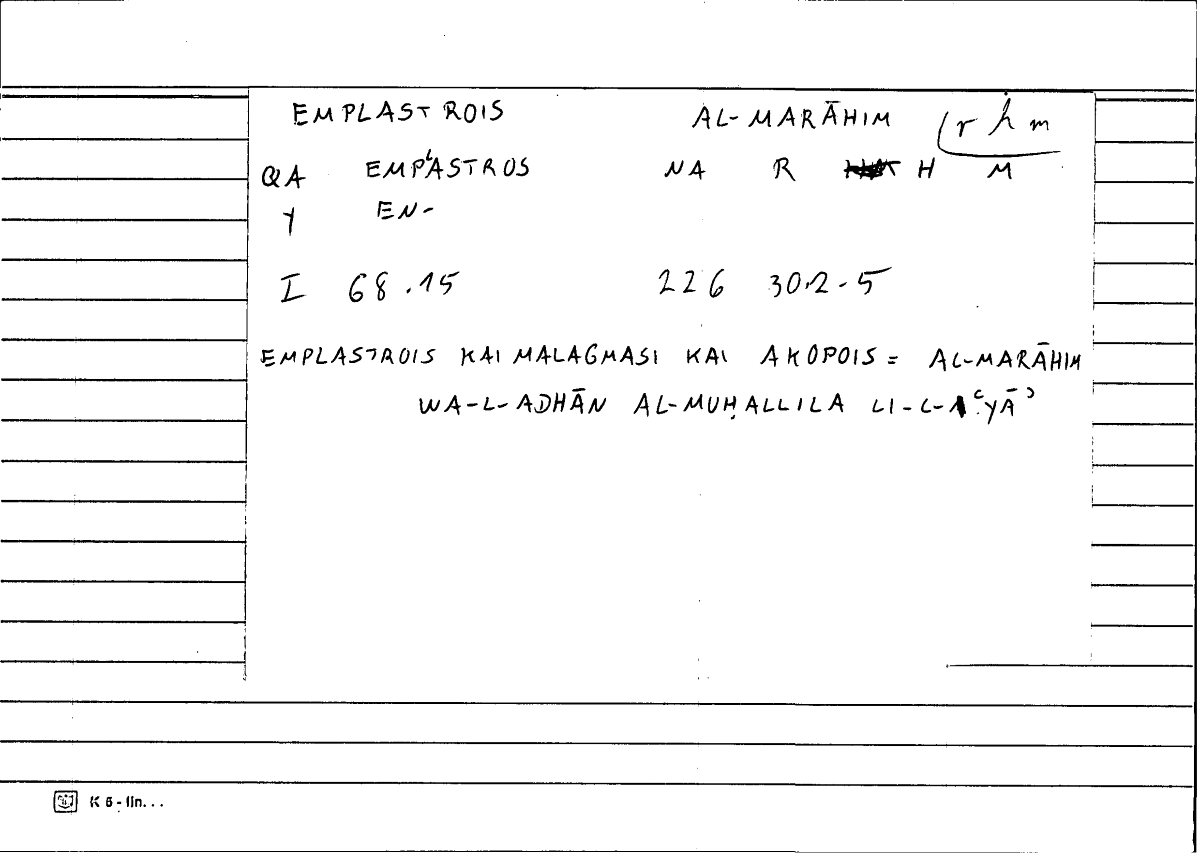 EMPLASTROIS AL-MARĀHIM (r ḣ m
QA EMPLASTROS NA R H M
Y EN-
I 68.15 226 302-5
EMPLASTROIS KAI MALAGMASI KAI AKOPOIS = AL-MARĀHIM
WA-L-ADHĀN AL-MUḤALLILA LI-L-AʿYĀʾ
K 6 - lin...